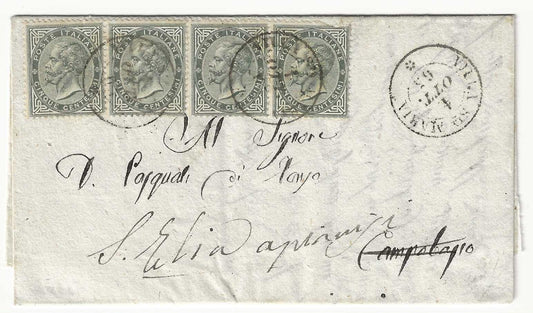 POSTE ITALIANE POSTE ITALIANE POSTE ITALIANE POSTE ITALIANE
CINQUE CENTESIMI CINQUE CENTESIMI CINQUE CENTESIMI CINQUE CENTESIMI
MARIA
4
OTT.
65
Al Signore
D. Pasquale di
S. Elia a
Campobasso